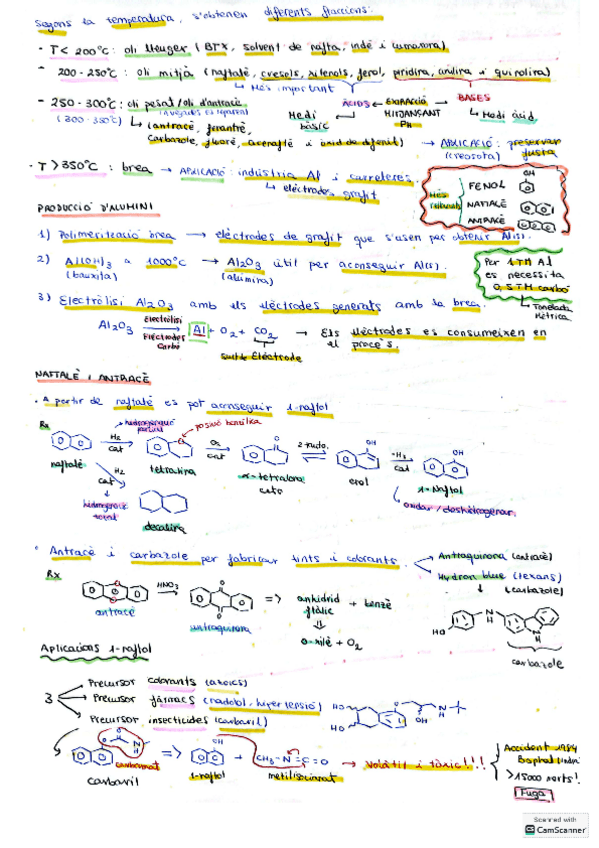 Segons la temperatura, s'obtenen diferents fraccions:
- T < 200°C : oli lleuger (BTX, solvent de nafta, indè i cumarona)
- 200-250°C : oli mitjà (naftalè, cresols, xilenols, fenol, piridina, anilina i quinolina)
↳ Més important
ÀCIDS ← EXTRACCIÓ → BASES
MITJANSANT PH
Medi bàsic
↳ Medi àcid
- 250-300°C : oli pesat / oli d'antracè
(300-350°C)
↳ (antracè, fenantrè, carbazole, fluorè, acenaftè i òxid de difenil)
→ APLICACIÓ : preservar fusta
(creosota)
- T > 350°C : brea → APLICACIÓ : indústria Al i carreteres.
↳ elèctrodes grafit
Més
FENOL
OH
NAFTALÈ
ANTRACÈ
PRODUCCIÓ D'ALUMINI
1) Polimerització brea → elèctrodes de grafit que s'usen per obtenir Al(s).
2) Al(OH)3 a 1000°C → Al2O3 útil per aconseguir Al(s).
(bauxita)
(alúmina)
Per 1TM Al
es necessita
0,5TM carbó
↳ Tonelada Mètrica
3) Electròlisi Al2O3 amb els elèctrodes generats amb la brea.
Al2O3 → Al + O2 + CO2 → Els elèctrodes es consumeixen en el procés.
Electròlisi
Elèctrodes Carbó
Surt de Elèctrode
NAFTALÈ I ANTRACÈ
· A partir de naftalè es pot aconseguir 1-naftol
Rx
hidrogenació parcial
posició benzílica
H2
cat
O2
cat
2 tauto.
-H2
cat
OH
OH
naftalè
tetralina
α-tetralona
ceto
enol
1-Naftol
↳ oxidar / deshidrogenar
H2
cat
hidrogenació total
decalina
· Antracè i carbazole per fabricar tints i colorants.
Antraquinona (antracè)
Hydron blue (texans)
(carbazole)
Rx
HNO3
antracè
antraquinona
=> anhídrid ftàlic + benzè
o-xilè + O2
HO
N
H
carbazole
Aplicacions 1-naftol
3
Precursor colorants (azoics)
Precursor fàrmacs (nadolol, hipertensió)
Precursor insecticides (carbaril)
HO
HO
OH
carbamat
carbaril
=>
OH
1-naftol
+ CH3-N=C=O
metilisocianat
→ Volàtil i tòxic!!!
Accident 1984
Bophal (Índia)
>15000 morts!
Fuga
Scanned with
CS CamScanner